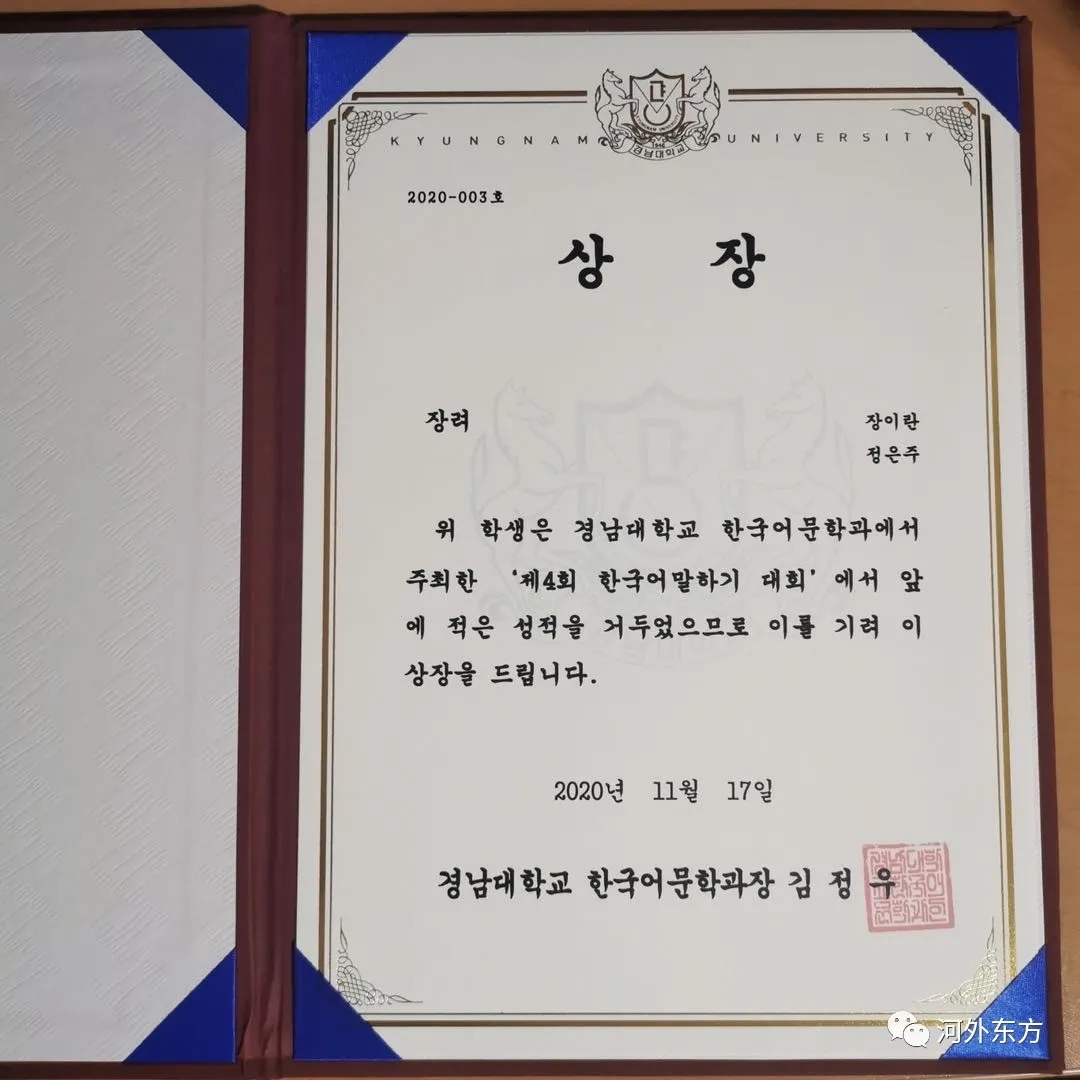 KYUNGNAM UNIVERSITY
1946
경남대학교
2020-003호
상 장
장려 장이란
정은주
위 학생은 경남대학교 한국어문학과에서
주최한 ‘제4회 한국어말하기 대회’에서 앞
에 적은 성적을 거두었으므로 이를 기려 이
상장을 드립니다.
2020년 11월 17일
경남대학교 한국어문학과장 김 정 우
河外东方